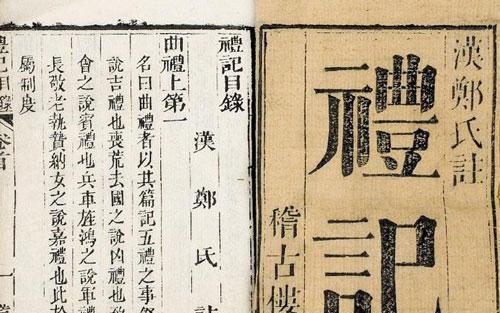 漢鄭氏註
禮記
稽古樓
禮記目錄
漢鄭氏註
曲禮上第一
名曰曲禮者以其篇記五禮之事祭
說吉禮也喪荒去國之說凶禮也致
會之說賓禮也兵車旌鴻之說軍禮
長敬老執贄納女之說嘉禮也此於
屬制度
禮記目錄 卷首 一